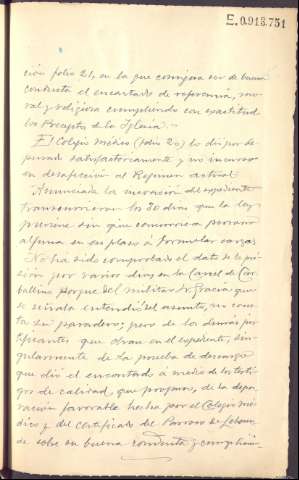 E.0.918.751
ción folio 21, en la que consigna ser de buena
conducta el encartado de referencia, mo-
ral y religiosa cumpliendo con exactitud
los Preceptos de la Iglesia.-
El Colegio Médico (folio 20) lo dio por de-
purado satisfactoriamente y no incurso
en desafección al Régimen actual.
Anunciada la incoación del expediente
transcurrieron los 30 días que la ley
previene sin que comparezca persona
alguna en su plazo a formular cargos
No ha sido comprobado el dato de la pri-
sión por varios dias en la Carcel de Car-
ballino porque del militar Sr. Gracia que
se señala entendió del asunto, no cons-
ta su paradero; pero de los demás jus-
tificantes que obran en el expediente, sin-
gularmente de la prueba de descargo
que dió el encartado a medio de los testi-
gos de calidad que propuso, de la depu-
ración favorable hecha por el Colegio Mé-
dico y del certificado del Parroco de
de sobre su buena conducta y cumplimi-